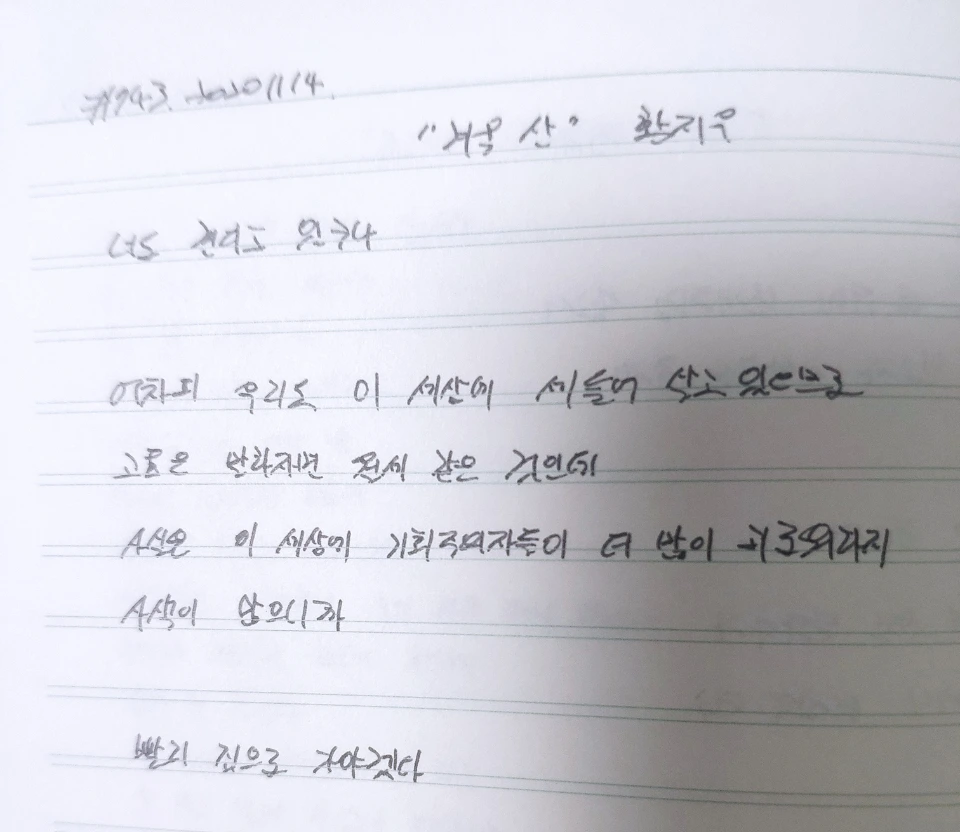 20201114.
"겨울 산" 황지우
너도 견디고 있구나
어차피 우리도 이 세상에 세들어 살고 있으므로
고통은 말하자면 월세 같은 것인데
사실은 이 세상에 기회주의자들이 더 많이 괴로워하지
사색이 많으니까
빨리 집으로 가야겠다